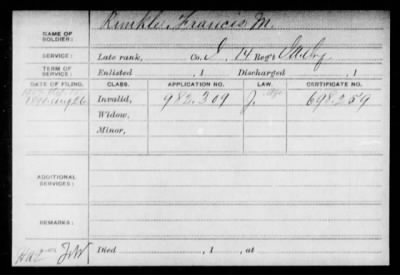 NAME OF SOLDIER: Kunkle, Francis M.
SERVICE: Late rank, Co. I, 14 Reg't
TERM OF SERVICE: Enlisted , 1 Discharged , 1
DATE OF FILING. CLASS. APPLICATION NO. LAW. CERTIFICATE NO.
Aug 26 Invalid, 982.309 J. 698.259
Widow,
Minor,
ADDITIONAL SERVICES:
REMARKS:
Died , 1 , at